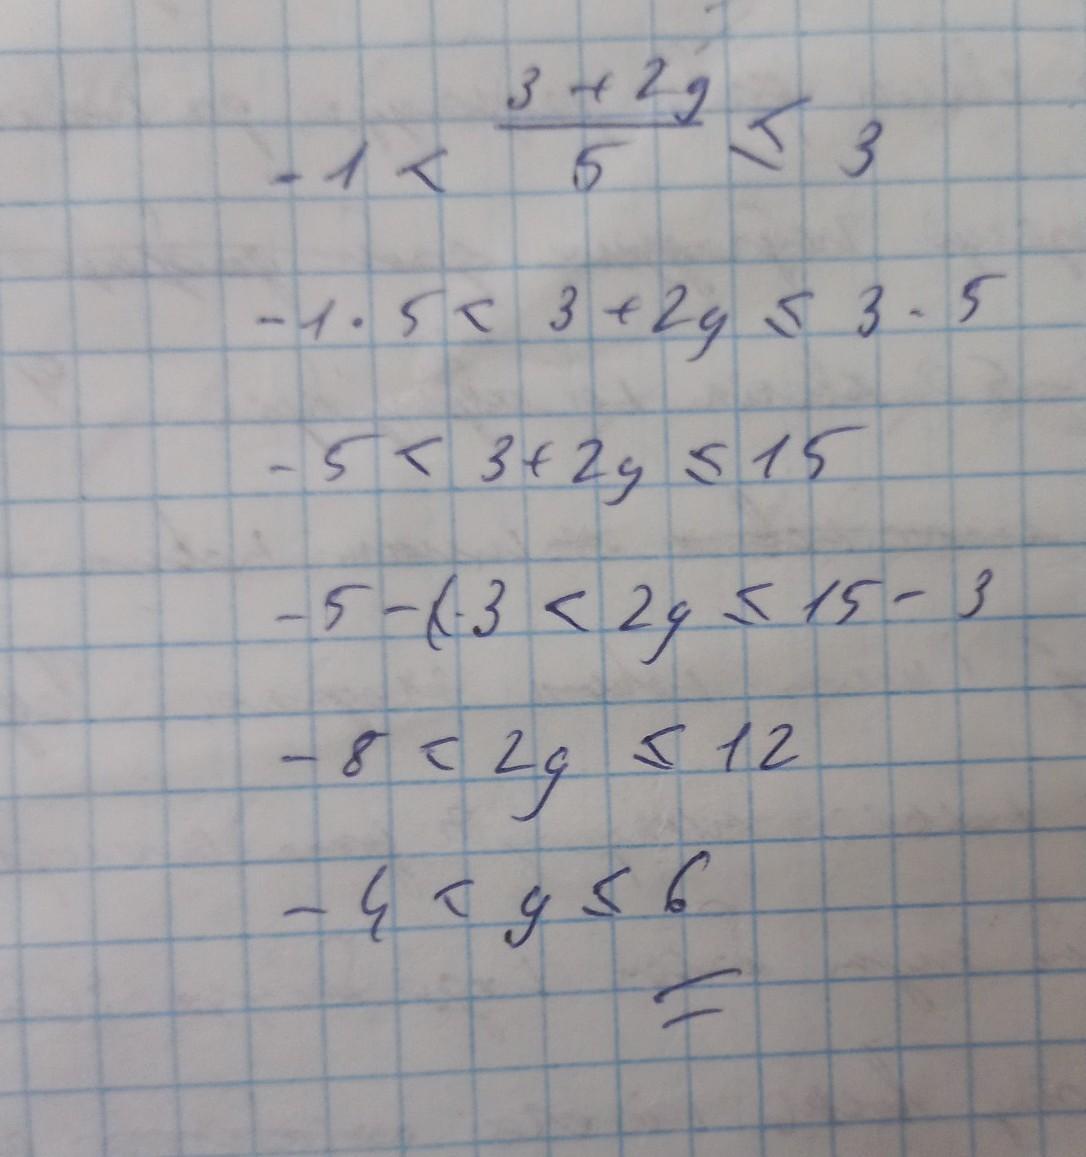 -1 < (3 + 2y)/5 ≤ 3
-1 · 5 < 3 + 2y ≤ 3 · 5
-5 < 3 + 2y ≤ 15
-5 - 3 < 2y ≤ 15 - 3
-8 < 2y ≤ 12
-4 < y ≤ 6